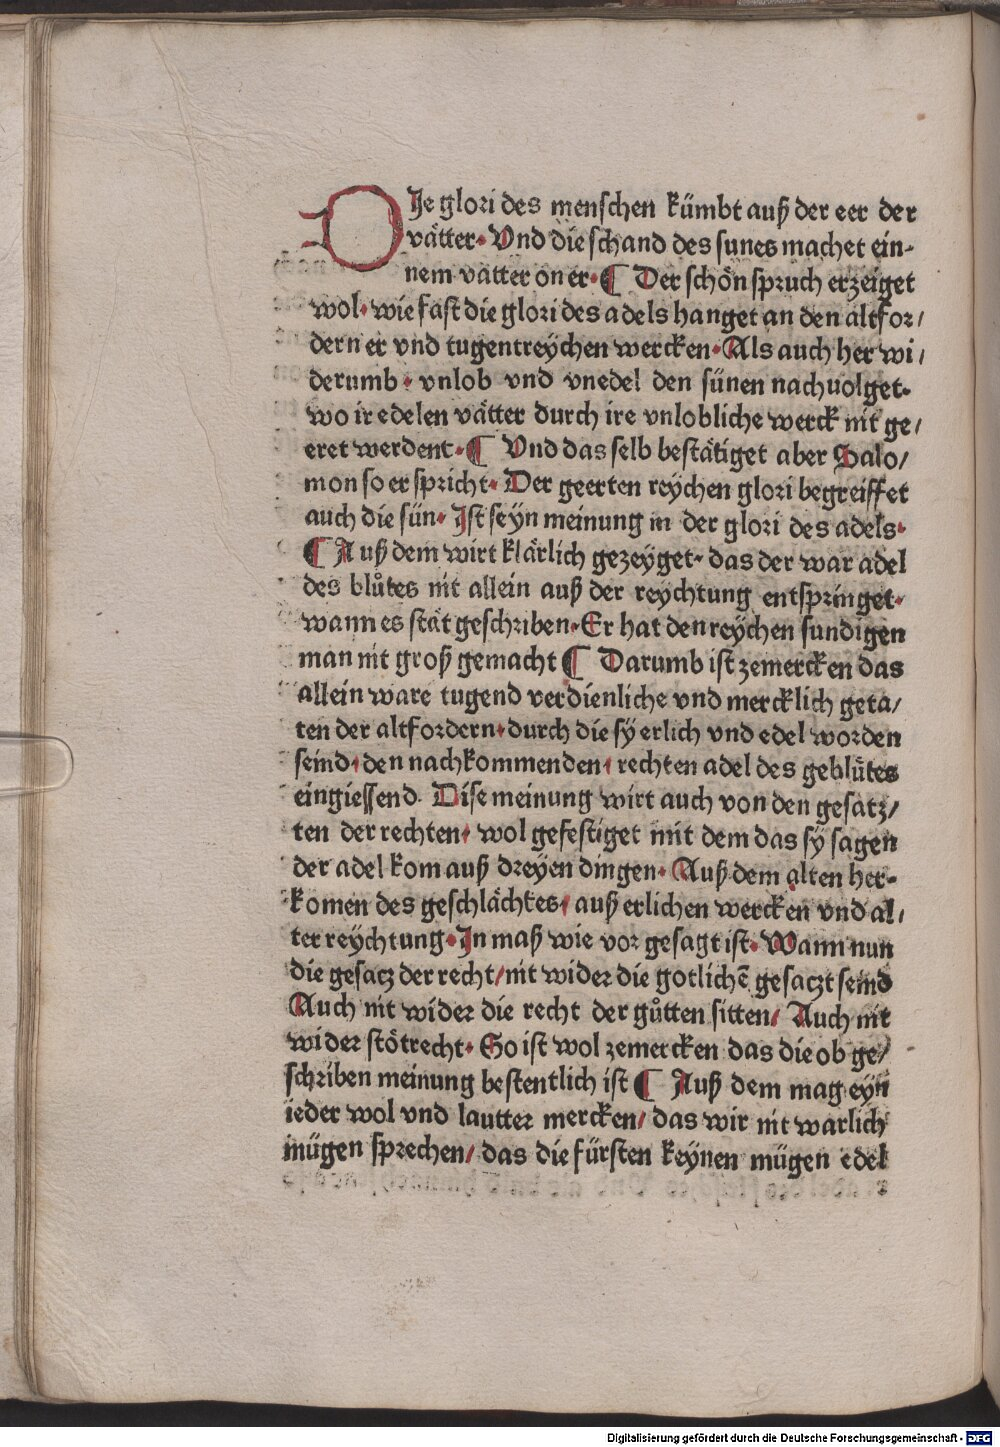 DIe glori des menschen kümbt auß der eer der
vätter. Vnd die schand des sunes machet ein-
nem vatter on er. ¶ Der schön spruch erzeiget
wol. wie fast die glori des adels hanget an den altfor/
dern er vnd tugentreychen wercken. Als auch her wi/
derumb. vnlob vnd vnedel den sünen nachuolget.
wo ir edelen vätter durch ire vnlobliche werck nit ge/
eret werdent. ¶ Vnd das selb bestätiget aber Salo/
mon so er spricht. Der geerten reychen glori begreiffet
auch die sün. Ist seyn meinung in der glori des adels.
¶ Auß dem wirt klärlich gezeyget. das der war adel
des blůtes nit allein auß der reychtung entspringet.
wann es stät geschriben. Er hat den reychen sundigen
man nit groß gemacht ¶ Darumb ist zemercken das
allein ware tugend verdienliche vnd mercklich geta/
ten der altfordern. durch die sy erlich vnd edel worden
seind. den nachkommenden. rechten adel des geblůtes
eingiessend. Dise meinung wirt auch von den gesatz/
ten der rechten. wol gefestiget mit dem das sy sagen
der adel kom auß dreyen dingen. Auß dem alten her-
komen des geschlächtes/ auß erlichen wercken vnd al/
ter reychtung. In maß wie vor gesagt ist. Wann nun
die gesacz der recht/ nit wider die gotlichē gesaczt seind
Auch nit wider die recht der gůtten sitten/ Auch nit
wider stötrecht. So ist wol zemercken das die ob ge/
schriben meinung bestentlich ist ¶ Auß dem mag eyn
ieder wol vnd lautter mercken/ das wir nit warlich
mügen sprechen/ das die fürsten keynen mügen edel
Digitalisierung gefördert durch die Deutsche Forschungsgemeinschaft - DFG